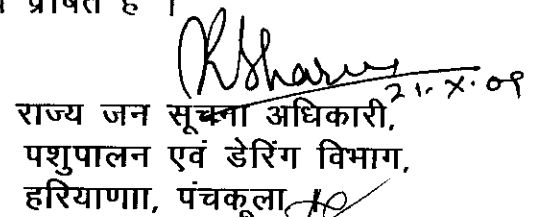 प्रेषित है ।
RSharma
21.X.09
राज्य जन सूचना अधिकारी,
पशुपालन एवं डेरिंग विभाग,
हरियाणाा, पंचकूला